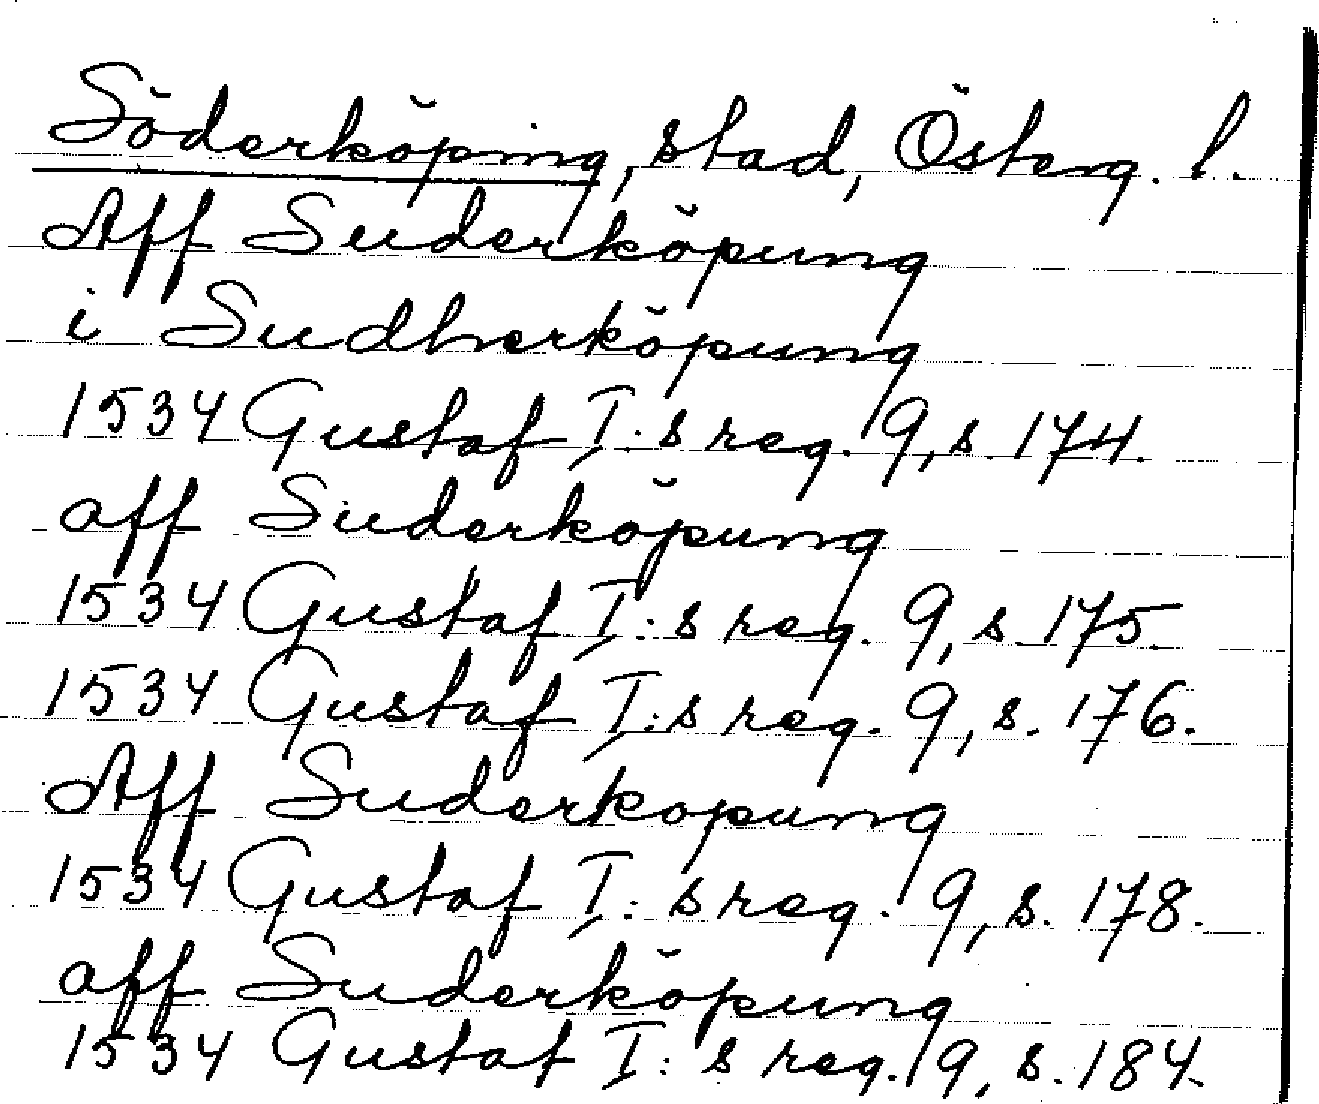 Söderköping, stad, Österg. l.
Aff Suderköpung
i Sudherköpung
1534 Gustaf I:s reg. 9, s. 174.
aff Suderköpung
1534 Gustaf I:s reg. 9, s. 175.
1534 Gustaf I:s reg. 9, s. 176.
Aff Suderkopung
1534 Gustaf I:s reg. 9, s. 178.
aff Suderköpung
1534 Gustaf I:s reg. 9, s. 184.